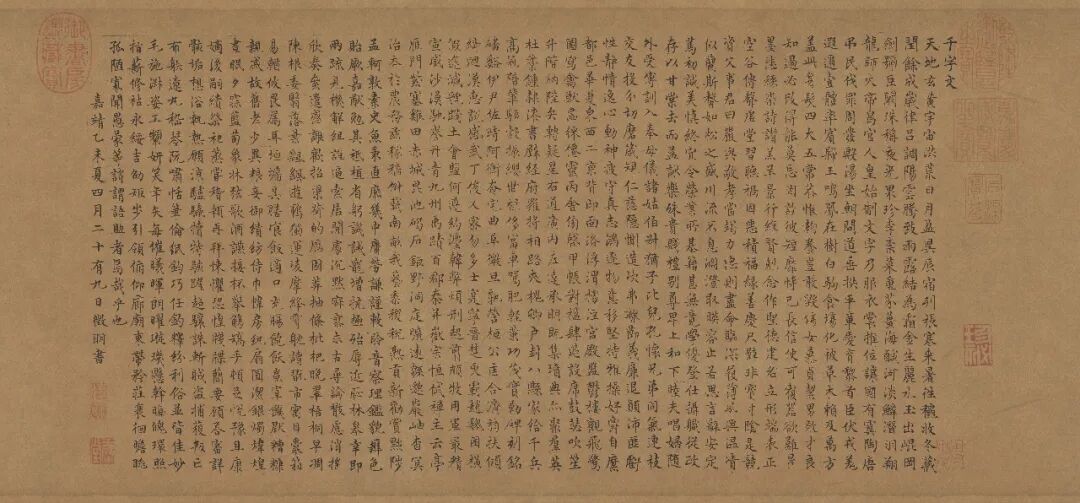 千字文
天地玄黃宇宙洪荒日月盈昃辰宿列張寒來暑往秋收冬藏
閏餘成歲律呂調陽雲騰致雨露結為霜金生麗水玉出崐岡
劍號巨闕珠稱夜光果珍李柰菜重芥薑海鹹河淡鱗潛羽翔
龍師火帝鳥官人皇始制文字乃服衣裳推位讓國有虞陶唐
弔民伐罪周發殷湯坐朝問道垂拱平章愛育黎首臣伏戎羌
遐邇壹體率賓歸王鳴鳳在樹白駒食場化被草木賴及萬方
蓋此身髮四大五常恭惟鞠養豈敢毀傷女慕貞絜男效才良
知過必改得能莫忘罔談彼短靡恃己長信使可覆器欲難量
墨悲絲染詩讚羔羊景行維賢剋念作聖德建名立形端表正
空谷傳聲虛堂習聽禍因惡積福緣善慶尺璧非寶寸陰是競
資父事君曰嚴與敬孝當竭力忠則盡命臨深履薄夙興溫凊
似蘭斯馨如松之盛川流不息淵澄取映容止若思言辭安定
篤初誠美慎終宜令榮業所基籍甚無竟學優登仕攝職從政
存以甘棠去而益詠樂殊貴賤禮別尊卑上和下睦夫唱婦隨
外受傅訓入奉母儀諸姑伯叔猶子比兒孔懷兄弟同氣連枝
交友投分切磨箴規仁慈隱惻造次弗離節義廉退顛沛匪虧
性靜情逸心動神疲守真志滿逐物意移堅持雅操好爵自縻
都邑華夏東西二京背邙面洛浮渭據涇宮殿盤鬱樓觀飛驚
圖寫禽獸畫綵仙靈丙舍傍啓甲帳對楹肆筵設席鼓瑟吹笙
升階納陛弁轉疑星右通廣內左達承明既集墳典亦聚群英
杜稾鍾隸漆書壁經府羅將相路俠槐卿戶封八縣家給千兵
高冠陪輦驅轂振纓世祿侈富車駕肥輕策功茂實勒碑刻銘
磻谿伊尹佐時阿衡奄宅曲阜微旦孰營桓公匡合濟弱扶傾
綺迴漢惠說感武丁俊乂密勿多士寔寧晉楚更霸趙魏困橫
假途滅虢踐土會盟何遵約法韓弊煩刑起翦頗牧用軍最精
宣威沙漠馳譽丹青九州禹跡百郡秦并嶽宗恒岱禪主云亭
雁門紫塞雞田赤城昆池碣石鉅野洞庭曠遠緜邈巖岫杳冥
治本於農務茲稼穡俶載南畝我藝黍稷稅熟貢新勸賞黜陟
孟軻敦素史魚秉直庶幾中庸勞謙謹敕聆音察理鑑貌辨色
貽厥嘉猷勉其祗植省躬譏誡寵增抗極殆辱近恥林皋幸即
兩疏見機解組誰逼索居閑處沉默寂寥求古尋論散慮消搖
欣奏累遣慼謝歡招渠荷的歷園莽抽條枇杷晚翠梧桐早凋
陳根委翳落葉飄颻遊鵾獨運凌摩絳霄耽讀翫市寓目囊箱
易輶攸畏屬耳垣牆具膳飡飯適口充腸飽飫烹宰飢厭糟糠
親戚故舊老少異糧妾御績紡侍巾帷房紈扇圓潔銀燭煒煌
晝眠夕寐藍筍象牀弦歌酒讌接杯舉觴矯手頓足悅豫且康
嫡後嗣續祭祀蒸嘗稽顙再拜悚懼恐惶牋牒簡要顧答審詳
骸垢想浴執熱願涼驢騾犢特駭躍超驤誅斬賊盜捕獲叛亡
布射遼丸嵇琴阮嘯恬筆倫紙鈞巧任釣釋紛利俗並皆佳妙
毛施淑姿工顰妍笑年矢每催曦暉朗曜璇璣懸斡晦魄環照
指薪修祜永綏吉劭矩步引領俯仰廊廟束帶矜莊裴徊瞻眺
孤陋寡聞愚蒙等誚謂語助者焉哉乎也
嘉靖乙未夏四月二十有九日徵明書